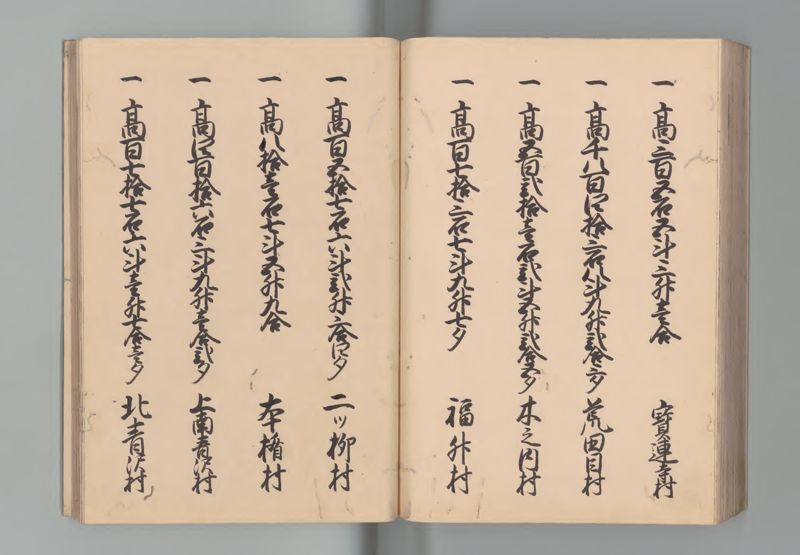 一 高三百五石五斗三升壱合 寶蓮寺村
一 高千八百四拾三石八斗九升弐合三夕 荒田目村
一 高五百弐拾壱石弐斗五升弐合五夕 木之内村
一 高百七拾三石七斗九升七夕 福升村
一 高百五拾七石六斗弐升六合四夕 二ッ柳村
一 高八拾壱石七斗五升九合 本楯村
一 高四百拾六石三斗九升壱合弐夕 上南青沢村
一 高百七拾七石六斗壱升七合壱夕 北青沢村